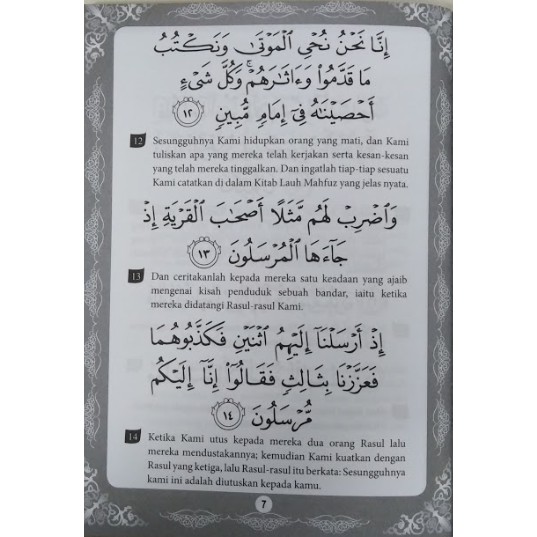 إِنَّا نَحْنُ نُحْيِ الْمَوْتَىٰ وَنَكْتُبُ
مَا قَدَّمُوا۟ وَءَاثَٰرَهُمْ ۚ وَكُلَّ شَىْءٍ
أَحْصَيْنَٰهُ فِىٓ إِمَامٍ مُّبِينٍ ١٢
12 Sesungguhnya Kami hidupkan orang yang mati, dan Kami
tuliskan apa yang mereka telah kerjakan serta kesan-kesan
yang telah mereka tinggalkan. Dan ingatlah tiap-tiap sesuatu
Kami catatkan di dalam Kitab Lauh Mahfuz yang jelas nyata.
وَاضْرِبْ لَهُم مَّثَلًا أَصْحَٰبَ الْقَرْيَةِ إِذْ
جَآءَهَا الْمُرْسَلُونَ ١٣
13 Dan ceritakanlah kepada mereka satu keadaan yang ajaib
mengenai kisah penduduk sebuah bandar, iaitu ketika
mereka didatangi Rasul-rasul Kami.
إِذْ أَرْسَلْنَآ إِلَيْهِمُ اثْنَيْنِ فَكَذَّبُوهُمَا
فَعَزَّزْنَا بِثَالِثٍ فَقَالُوٓا۟ إِنَّآ إِلَيْكُم
مُّرْسَلُونَ ١٤
14 Ketika Kami utus kepada mereka dua orang Rasul lalu
mereka mendustakannya; kemudian Kami kuatkan dengan
Rasul yang ketiga, lalu Rasul-rasul itu berkata: Sesungguhnya
kami ini adalah diutuskan kepada kamu.
7